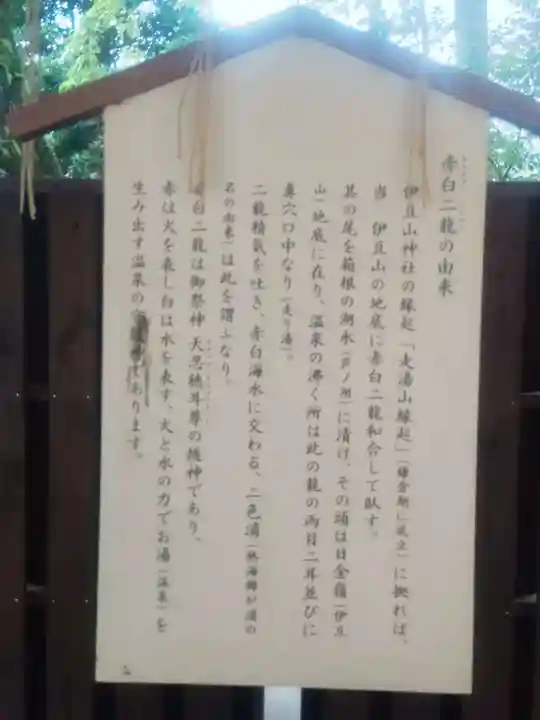 赤白二龍の由来
伊豆山神社の縁起「走湯山縁起」(鎌倉期に成立)に拠れば、
当 伊豆山の地底に赤白二龍和合して臥す。
其の尾を箱根の湖水(芦ノ湖)に漬け、その頭は日金嶺(伊豆
山)地底に在り、温泉の沸く所は此の龍の両目二耳並びに
鼻穴口中なり(走り湯)。
二龍精気を吐き、赤白海水に交わる、二色浦(熱海郷が浦の
名の由来)は此を謂ふなり。
白二龍は御祭神 天忍穂耳尊の随神であり、
赤は火を表し白は水を表す、火と水の力でお湯(温泉)を
生み出す温泉の であります。